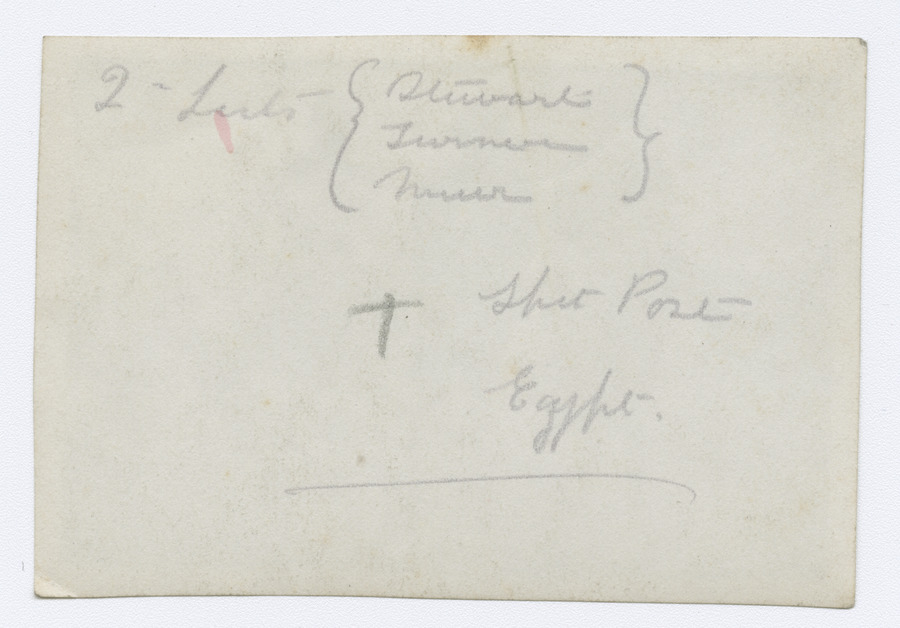 2 - Lieuts { Stewart
Turner
Muir }
+ Spit Post
Egypt.